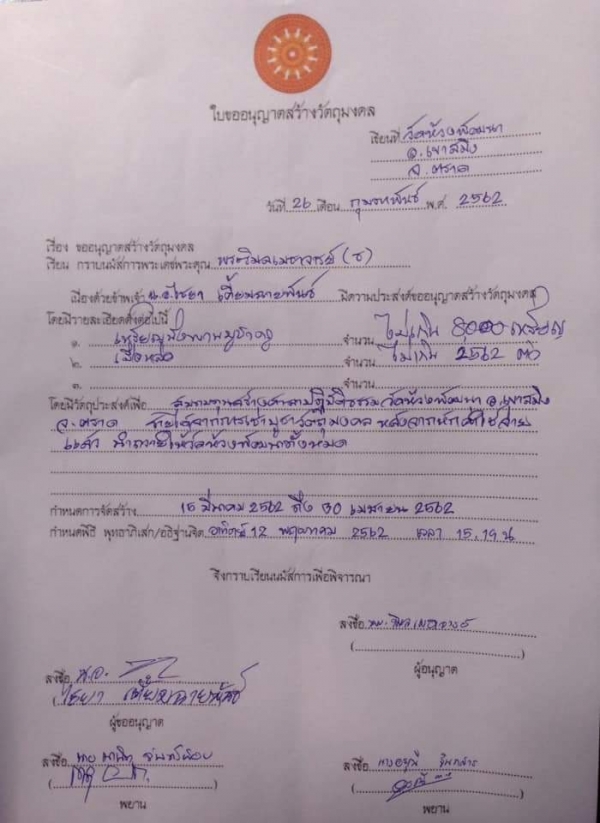 ใบขออนุญาตสร้างวัตถุมงคล
เขียนที่ วัดห้วงพัฒนา
อ.เขาสมิง
จ.ตราด
วันที่ 26 เดือน กุมภาพันธ์ พ.ศ. 2562
เรื่อง ขออนุญาตสร้างวัตถุมงคล
เรียน กราบนมัสการพระเดชพระคุณ พระวิมลเมธาจารย์ (ธ)
เนื่องด้วยข้าพเจ้า น.อ.ไชยา มีความประสงค์ขออนุญาตสร้างวัตถุมงคล
โดยมีรายละเอียดดังต่อไปนี้
๑. จำนวน ไม่เกิน 8,000 เหรียญ
๒. เนื้อหล่อ จำนวน ไม่เกิน 2562
๓. จำนวน
โดยมีวัตถุประสงค์เพื่อ สมทบทุนสร้างศาลาปฏิบัติธรรม วัดห้วงพัฒนา อ.เขาสมิง
จ.ตราด รายได้จากการเช่าบูชาวัตถุมงคล หลังจากหักค่าใช้จ่าย
แล้ว นำถวายให้วัดห้วงพัฒนาทั้งหมด
กำหนดการจัดสร้าง 15 มีนาคม 2562 ถึง 30 เมษายน 2562
กำหนดพิธี พุทธาภิเสก/อธิฐานจิต อาทิตย์ 12 พฤษภาคม 2562 เวลา 15.19 น
จึงกราบเรียนนมัสการเพื่อพิจารณา
ลงชื่อ พระวิมลเมธาจารย์
( )
ผู้อนุญาต
ลงชื่อ น.อ.
(ไชยา )
ผู้ขออนุญาต
ลงชื่อ นาย
( )
พยาน
ลงชื่อ
( )
พยาน